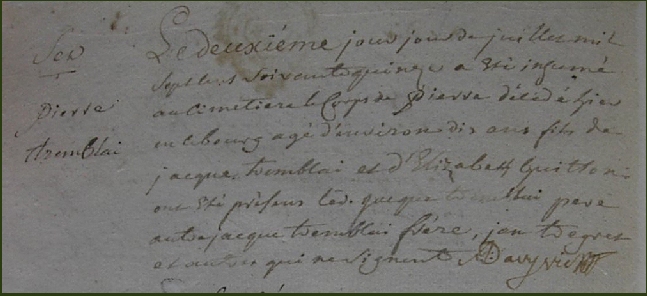 Sep
pierre
tremblai
Le deuxiéme jour jour de juillet mil
sept cent soixante quinze a été inhumé
au cimetiere le Corps de pierre décédé hier
en ce bourg agé d'environ dix ans fils de
jacque tremblai et d'Elizabeth Guitton
ont été présens led. jacque tremblai pere
autre jacque tremblai frére, jean
et autres qui ne signent Davy